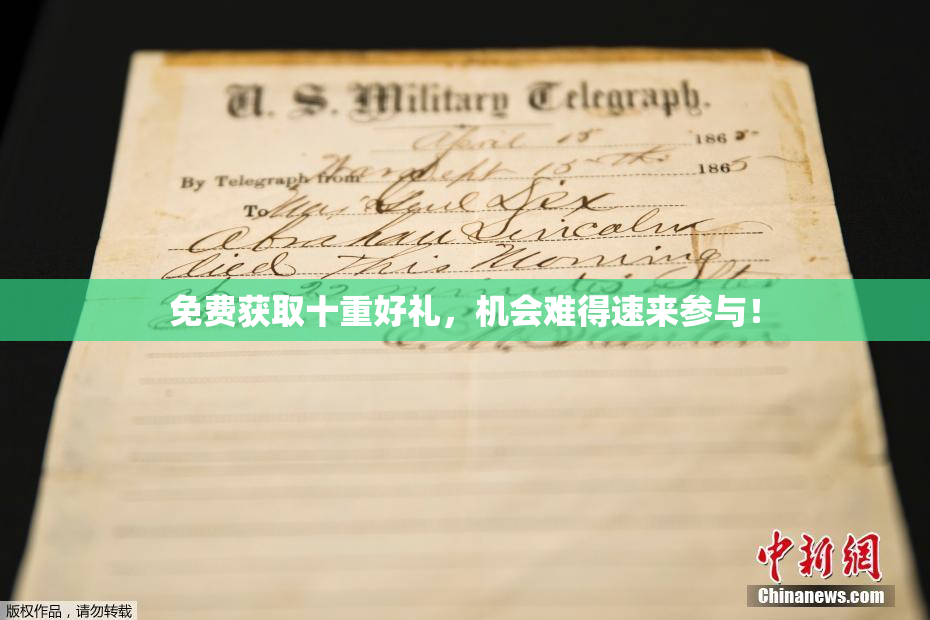 U. S. Military Telegraph.
April 15 1865
By Telegraph from War Dept 15th 1865
To Maj Genl Dix
Abraham Lincoln
died This Morning
22 minutes after
免费获取十重好礼，机会难得速来参与！
E. M. Stanton
中新网
版权作品，请勿转载
Chinanews.com